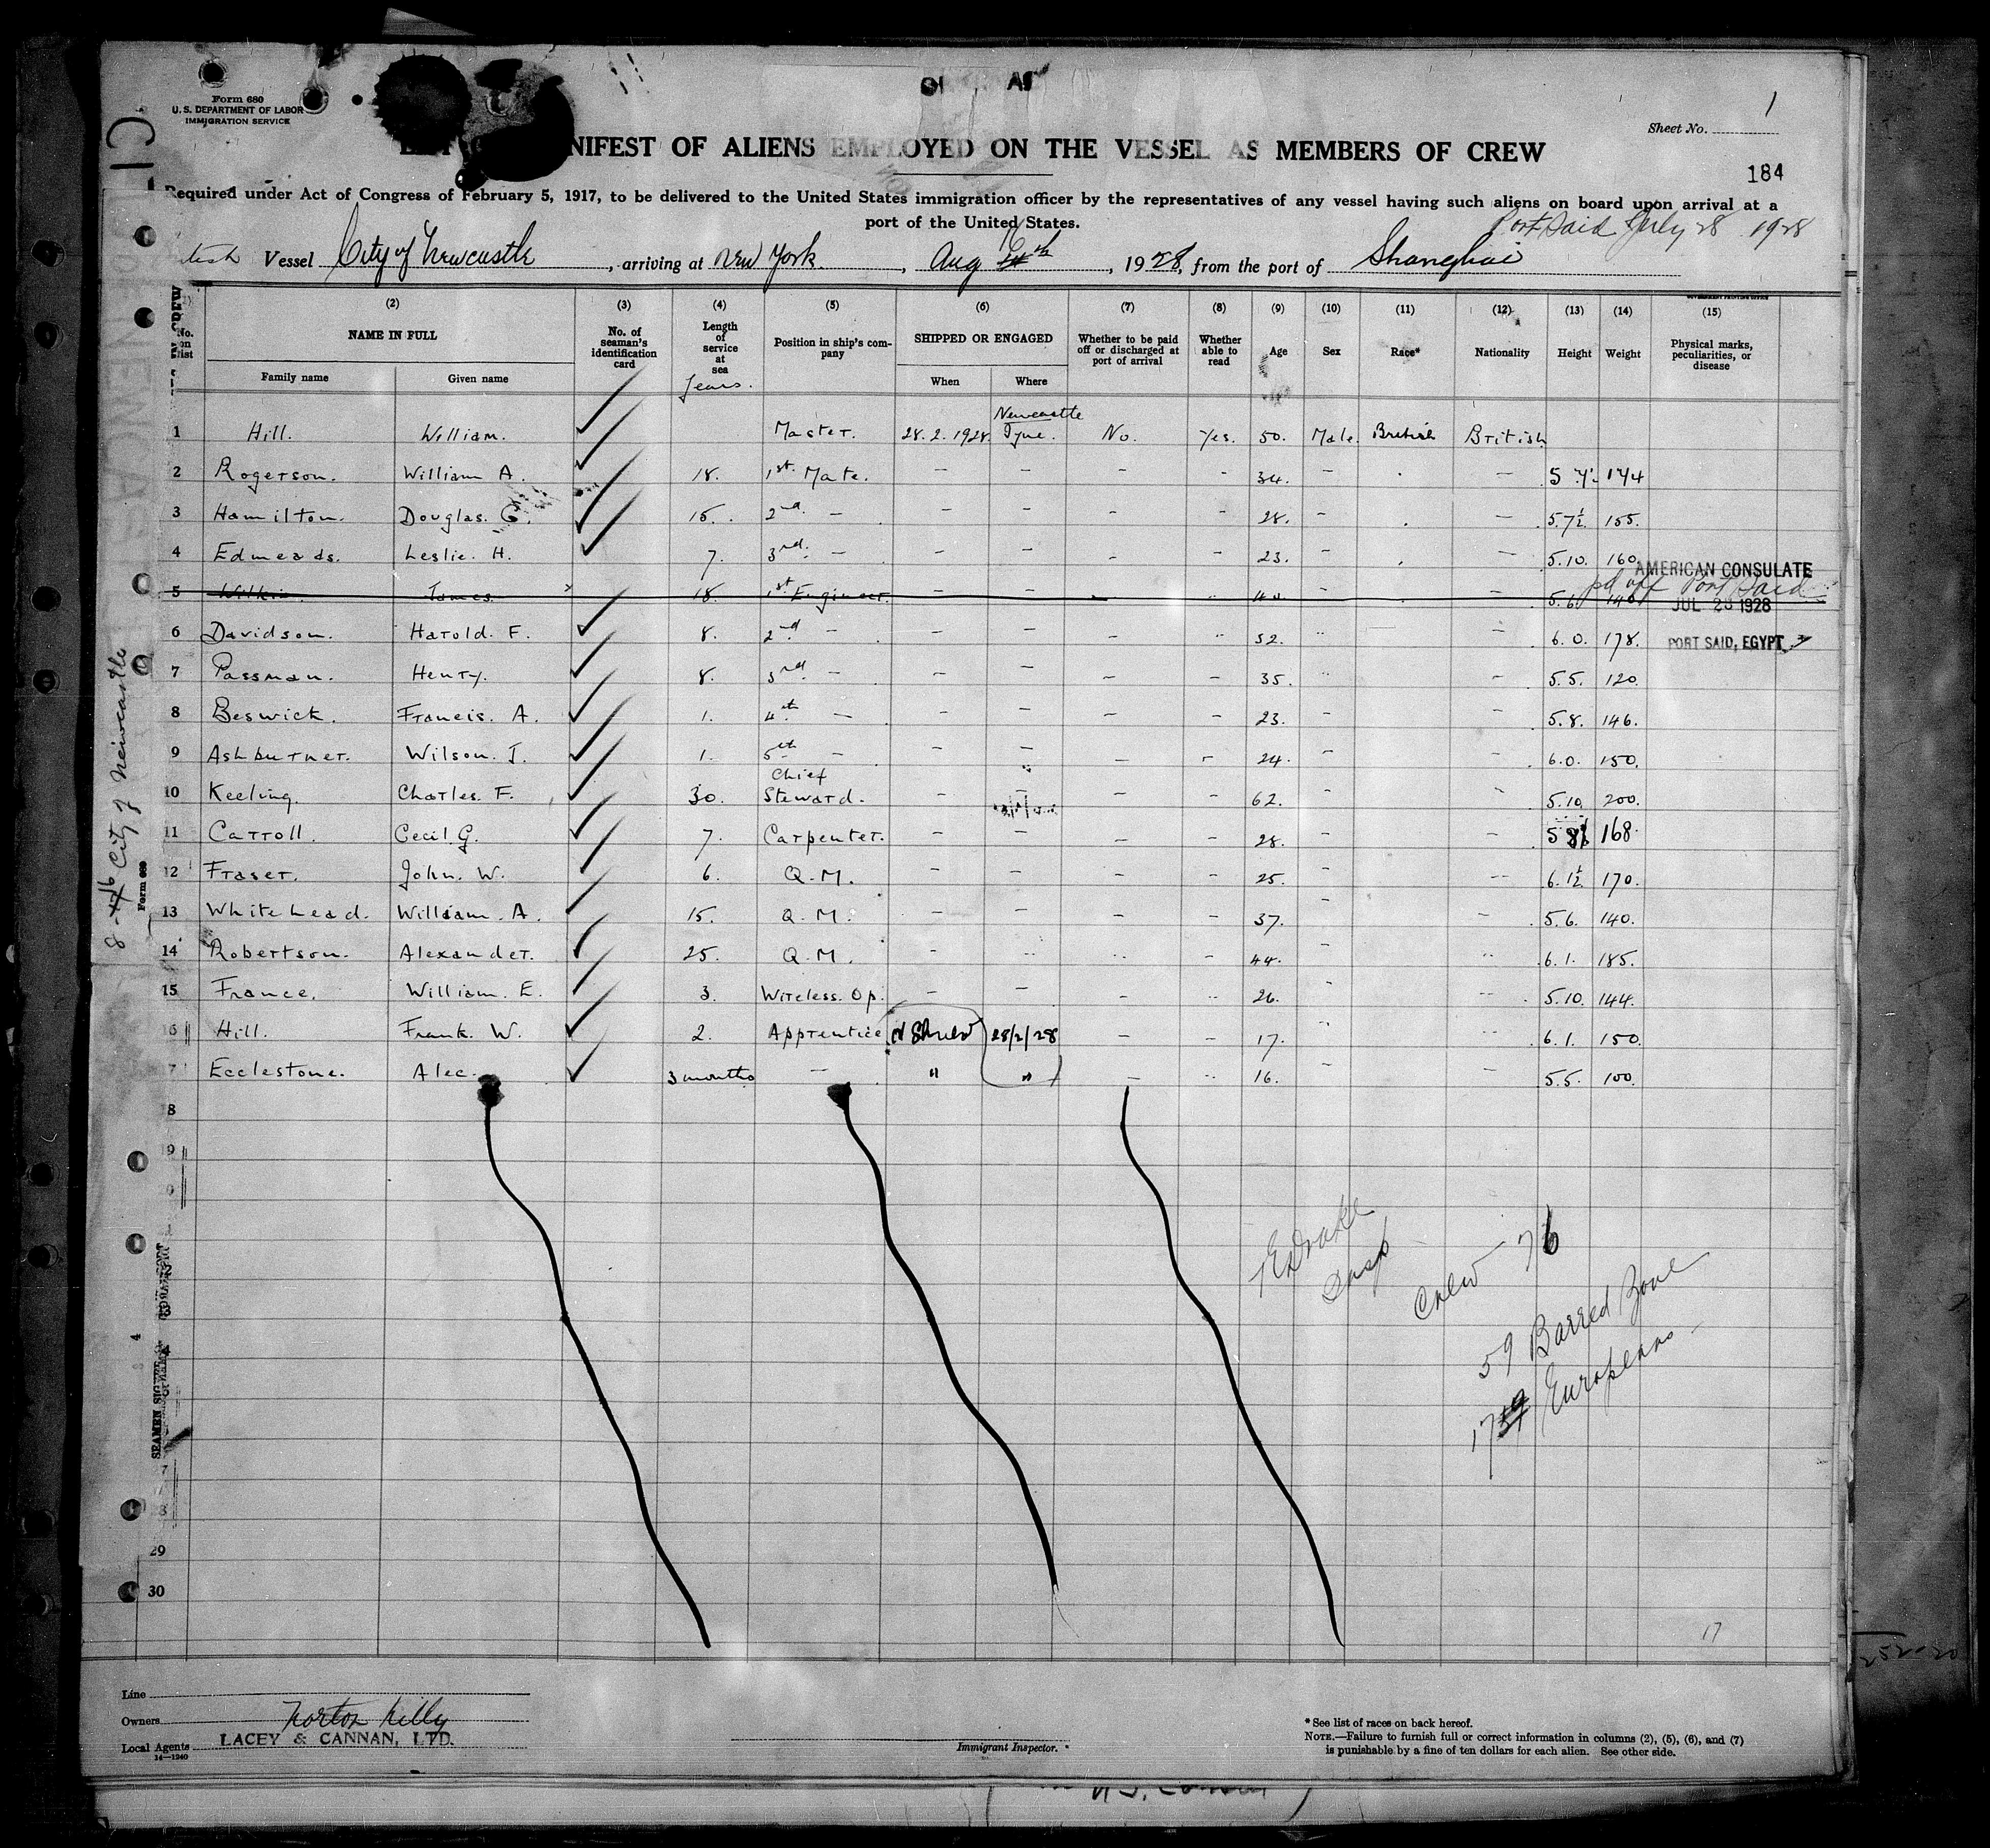 Form 680
U. S. DEPARTMENT OF LABOR
IMMIGRATION SERVICE
Sheet No. 1
184
NIFEST OF ALIENS EMPLOYED ON THE VESSEL AS MEMBERS OF CREW
Required under Act of Congress of February 5, 1917, to be delivered to the United States immigration officer by the representatives of any vessel having such aliens on board upon arrival at a
port of the United States.
Port Said July 28 1928
Vessel City of Newcastle, arriving at New York, Aug 16th, 1928, from the port of Shanghai
(2) (3) (4) (5) (6) (7) (8) (9) (10) (11) (12) (13) (14) (15)
No. on list NAME IN FULL Family name Given name No. of seaman's identification card Length of service at sea Position in ship's company SHIPPED OR ENGAGED When Where Whether to be paid off or discharged at port of arrival Whether able to read Age Sex Race* Nationality Height Weight Physical marks, peculiarities, or disease
years.
1 Hill. William. Master. 28.2.1928. Newcastle Tyne. No. Yes. 50. Male. British British
2 Rogerson. William A. 18. 1st Mate. – – – – 34. – – 5 7½ 174
3 Hamilton. Douglas. G. 15. 2nd – – – – – 28. – – 5.7½ 155.
4 Edmeads. Leslie. H. 7. 3rd. – – – – – 23. – – 5.10. 160
AMERICAN CONSULATE
5 Wilkin. James. 18. 1st Engineer. – – – 40. – – 5.6 140 pd off Port Said
JUL 28 1928
6 Davidson. Harold. F. 8. 2nd – – – – 32. – 6.0. 178.
PORT SAID, EGYPT
7 Passman. Henry. 8. 3rd – – – – – 35. – 5.5. 120.
8 Beswick. Francis. A. 1. 4th – – – – – 23. – – 5.8. 146.
9 Ashburner. Wilson. J. 1. 5th – – – – – 24. – – 6.0. 150.
10 Keeling. Charles. F. 30. Chief Steward. – – – – 62. – 5.10 200.
11 Carroll. Cecil. G. 7. Carpenter. – – – – 28. – – 5 8½ 168
12 Fraser. John. W. 6. Q.M. – – – – 25. – – 6.1½ 170.
13 Whitehead. William. A. 15. Q.M. – – – – 37. – – 5.6. 140.
14 Robertson. Alexander. 25. Q.M. – – 44. – 6.1. 185.
15 France. William. E. 3. Wireless. Op. – – – 26. – 5.10. 144.
16 Hill. Frank. W. 2. Apprentice 28/2/28 – – 17. 6.1. 150.
17 Ecclestone. Alec. 3 months – " " – 16. – – 5.5. 100.
8
9
29
30
Crew 76
59 Barred Zone
17 Europeans
17
8-16 City of Newcastle
Form 680
Line
Owners Norton Lilly
Local Agents LACEY & CANNAN, LTD.
14—1240
Immigrant Inspector.
* See list of races on back hereof.
NOTE.—Failure to furnish full or correct information in columns (2), (5), (6), and (7)
is punishable by a fine of ten dollars for each alien. See other side.